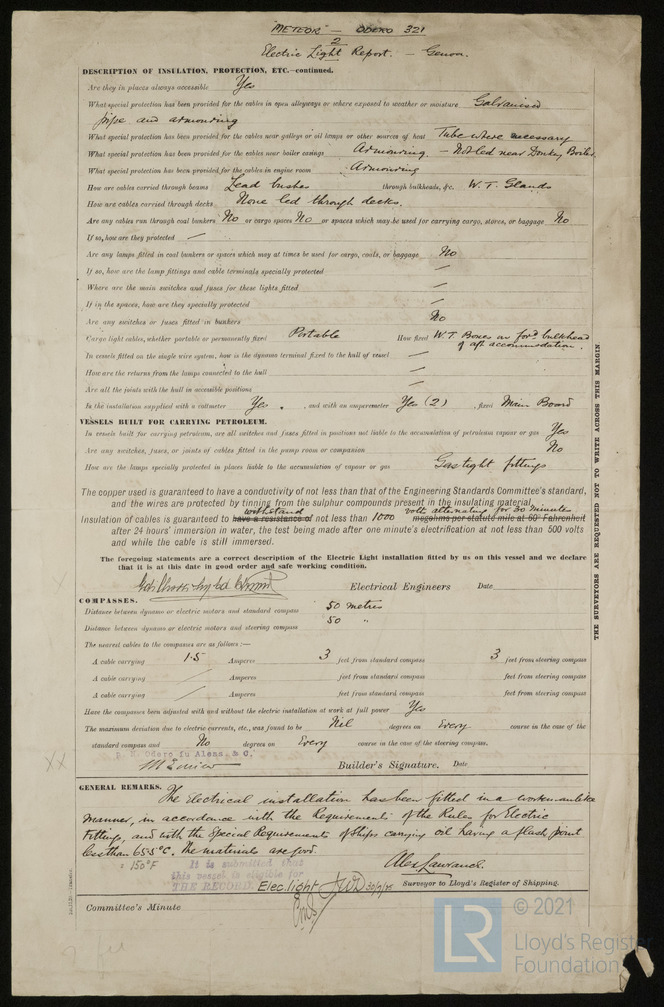 "METEOR" — ODERO 321
2
Electric Light Report. — Genoa.
DESCRIPTION OF INSULATION, PROTECTION, ETC.—continued.
Are they in places always accessible Yes
What special protection has been provided for the cables in open alleyways or where exposed to weather or moisture Galvanised
pipe and armouring
What special protection has been provided for the cables near galleys or oil lamps or other sources of heat Tube where necessary
What special protection has been provided for the cables near boiler casings Armouring. — Not led near Donkey Boiler.
What special protection has been provided for the cables in engine room Armouring
How are cables carried through beams Lead bushes through bulkheads, &c. W. T. Glands
How are cables carried through decks None led through decks.
Are any cables run through coal bunkers No or cargo spaces No or spaces which may be used for carrying cargo, stores, or baggage No
If so, how are they protected —
Are any lamps fitted in coal bunkers or spaces which may at times be used for cargo, coals, or baggage No
If so, how are the lamp fittings and cable terminals specially protected —
Where are the main switches and fuses for these lights fitted —
If in the spaces, how are they specially protected —
Are any switches or fuses fitted in bunkers No
Cargo light cables, whether portable or permanently fixed Portable How fixed W.T Boxes on ford bulkhead
of aft accommodation.
In vessels fitted on the single wire system, how is the dynamo terminal fixed to the hull of vessel —
How are the returns from the lamps connected to the hull —
Are all the joints with the hull in accessible positions —
Is the installation supplied with a voltmeter Yes , and with an amperemeter Yes (2) , fixed Main Board
VESSELS BUILT FOR CARRYING PETROLEUM.
In vessels built for carrying petroleum, are all switches and fuses fitted in positions not liable to the accumulation of petroleum vapour or gas Yes
Are any switches, fuses, or joints of cables fitted in the pump room or companion No
How are the lamps specially protected in places liable to the accumulation of vapour or gas Gastight fittings
The copper used is guaranteed to have a conductivity of not less than that of the Engineering Standards Committee's standard,
and the wires are protected by tinning from the sulphur compounds present in the insulating material.
withstand volts alternating for 30 minutes
Insulation of cables is guaranteed to have a resistance of not less than 1000 megohms per statute mile at 60° Fahrenheit
after 24 hours' immersion in water, the test being made after one minute's electrification at not less than 500 volts
and while the cable is still immersed.
The foregoing statements are a correct description of the Electric Light installation fitted by us on this vessel and we declare
that it is at this date in good order and safe working condition.
Electrical Engineers Date
COMPASSES.
Distance between dynamo or electric motors and standard compass 50 metres
Distance between dynamo or electric motors and steering compass 50 "
The nearest cables to the compasses are as follows:—
A cable carrying 1.5 Amperes 3 feet from standard compass 3 feet from steering compass
A cable carrying Amperes feet from standard compass feet from steering compass
A cable carrying Amperes feet from standard compass feet from steering compass
Have the compasses been adjusted with and without the electric installation at work at full power Yes
The maximum deviation due to electric currents, etc., was found to be Nil degrees on Every course in the case of the
standard compass and No degrees on Every course in the case of the steering compass.
Odero fu Aless. & C.
Builder's Signature. Date
XX
GENERAL REMARKS. The Electrical installation has been fitted in a workmanlike
manner, in accordance with the Requirements of the Rules for Electric
Fittings, and with the Special Requirements of Ships carrying oil having a flash point
less than 65.5°C. The materials are good.
= 150°F
Alex Lawrance.
It is submitted that
this vessel is eligible for
THE RECORD. Elec. light
Surveyor to Lloyd's Register of Shipping.
Committee's Minute
THE SURVEYORS ARE REQUESTED NOT TO WRITE ACROSS THIS MARGIN.
LR
© 2021
Lloyd's Register
Foundation